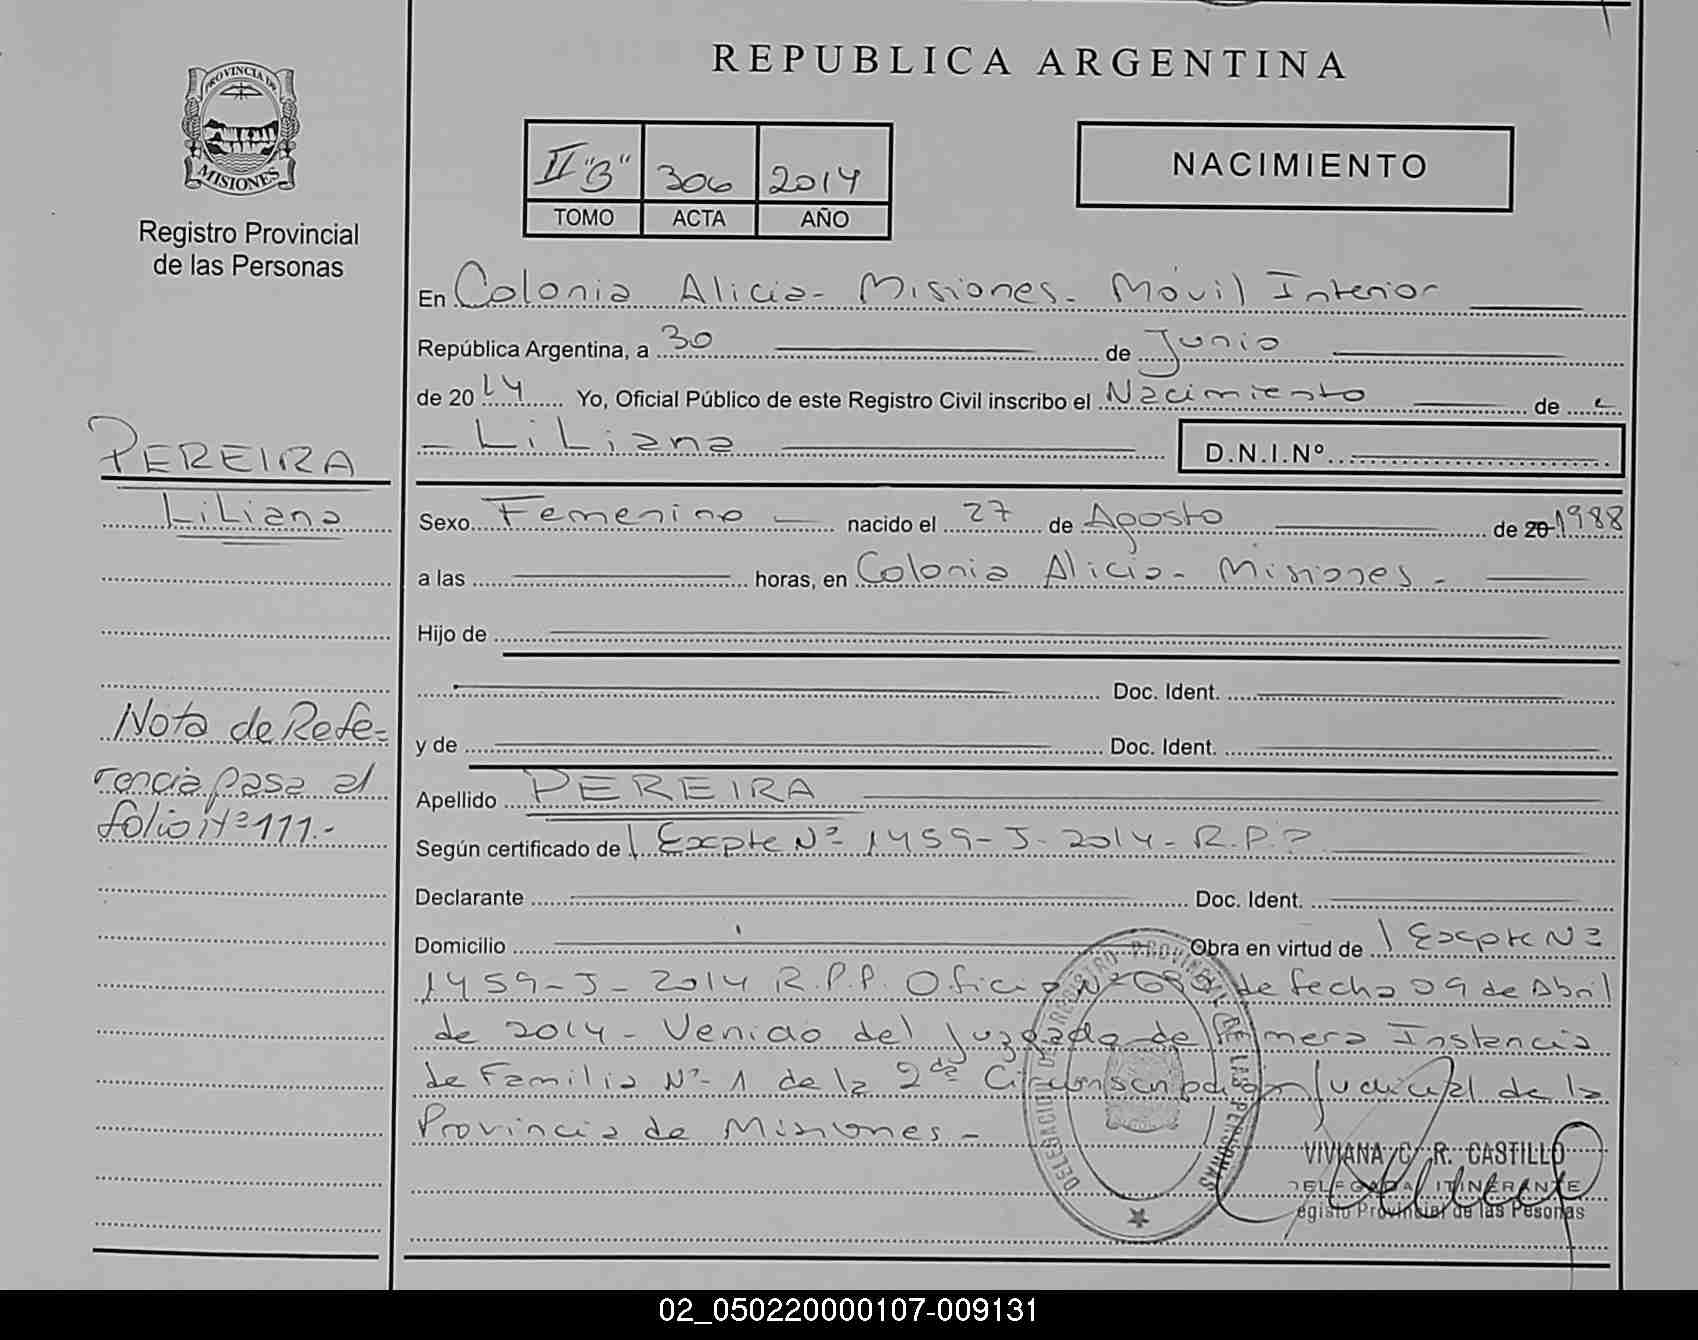 REPUBLICA ARGENTINA
PROVINCIA DE
MISIONES
Registro Provincial
de las Personas
II "B" 306 2014
TOMO ACTA AÑO
NACIMIENTO
En Colonia Alicia - Misiones - Móvil Interior
República Argentina, a 30 de Junio
de 2014 Yo, Oficial Público de este Registro Civil inscribo el Nacimiento de
- LiLiana D.N.I.Nº
PEREIRA
LiLiana
Sexo Femenino nacido el 27 de Agosto de 20 1988
a las horas, en Colonia Alicia - Misiones -
Hijo de
Doc. Ident.
y de Doc. Ident.
Apellido PEREIRA
Según certificado de Expte Nº 1459-J-2014-R.P.P
Declarante Doc. Ident.
Domicilio Obra en virtud de Expte Nº
1459-J-2014 R.P.P. Oficio Nº de fecha 09 de Abril
de 2014 - Venido del Juzgado de Primera Instancia
de Familia Nº 1 de la 2da Circunscripción Judicial de la
Provincia de Misiones -
Nota de Refe=
rencia pasa al
folio Nº 111.-
DELEGACION DEL REGISTRO PROVINCIAL DE LAS PERSONAS
VIVIANA C. R. CASTILLO
DELEGADA ITINERANTE
egisto Provincial de las Pesonas
02_050220000107-009131